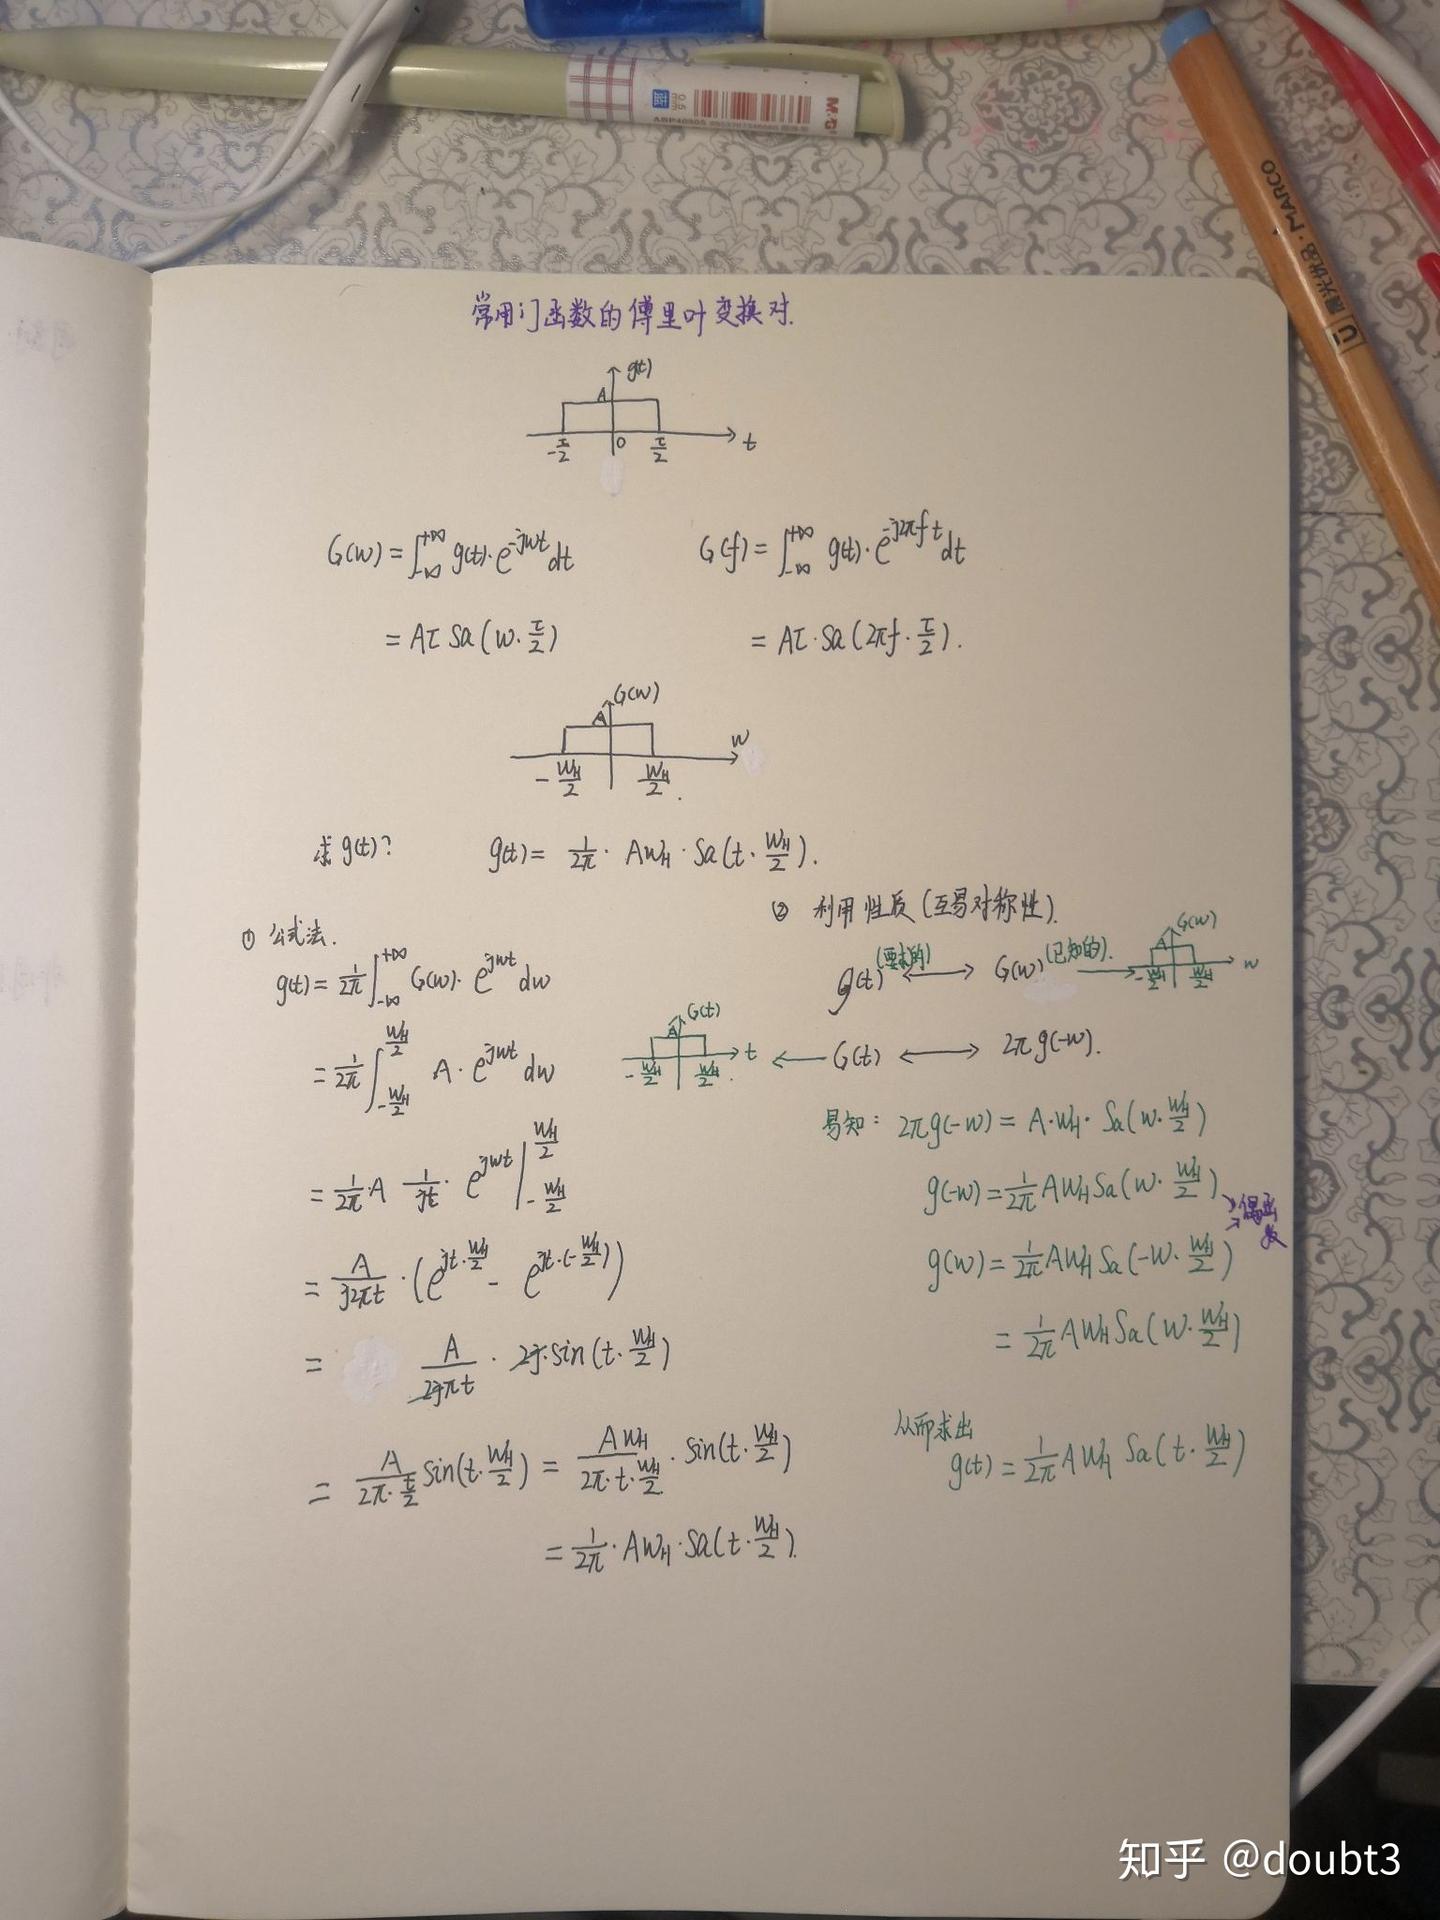 0.5
mm
蓝
ABP40905
M&G
晨光优品·MARCO
常用门函数的傅里叶变换对.
g(t)
A
-τ/2 0 τ/2 t
G(w) = ∫_{-∞}^{+∞} g(t)·e^{-jwt}dt
= Aτ Sa(w·τ/2)
G(f) = ∫_{-∞}^{+∞} g(t)·e^{-j2πft}dt
= Aτ·Sa(2πf·τ/2).
G(w)
A
w
-W_H/2 W_H/2.
求 g(t)? g(t) = 1/2π · AW_H · Sa(t·W_H/2).
① 公式法.
g(t) = 1/2π ∫_{-∞}^{+∞} G(w)·e^{jwt}dw
= 1/2π ∫_{-W_H/2}^{W_H/2} A·e^{jwt}dw
= 1/2π·A 1/jt · e^{jwt} |_{-W_H/2}^{W_H/2}
= A/j2πt · (e^{jt·W_H/2} - e^{jt·(-W_H/2)})
= A/2jπt · 2j·sin(t·W_H/2)
= A/(2π·t/2) sin(t·W_H/2) = AW_H/(2π·t·W_H/2) · sin(t·W_H/2)
= 1/2π · AW_H · Sa(t·W_H/2).
② 利用性质(互易对称性).
g(t) (要求的) ⟷ G(w) (已知的). →
G(w)
A
-W_H/2 W_H/2 w
G(t)
A
t
-W_H/2 W_H/2.
← G(t) ⟷ 2πg(-w).
易知: 2πg(-w) = A·W_H·Sa(w·W_H/2)
g(-w) = 1/2π AW_H Sa(w·W_H/2)
偶函数
g(w) = 1/2π AW_H Sa(-w·W_H/2)
= 1/2π AW_H Sa(w·W_H/2)
从而求出
g(t) = 1/2π AW_H Sa(t·W_H/2)
知乎 @doubt3